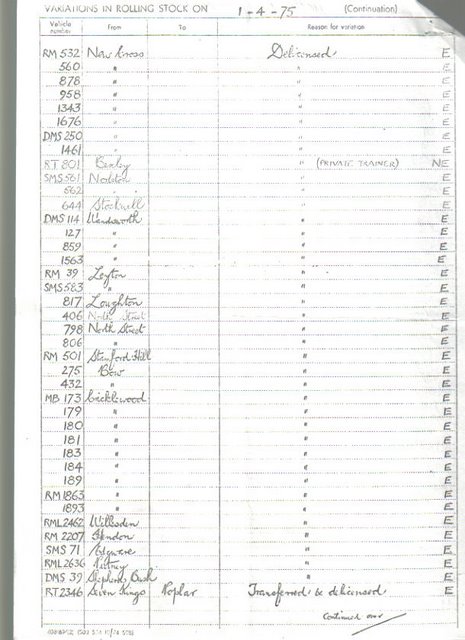 VARIATIONS IN ROLLING STOCK ON 1-4-75 (Continuation)
Vehicle number From To Reason for variation
RM 532 New Cross Delicensed E
560 " " E
878 " " E
958 " " E
1343 " " E
1676 " " E
DMS 250 " " E
1461 " " E
RT 801 Bexley " (PRIVATE TRAINER) NE
SMS 561 " E
562 " " E
644 Stockwell " E
DMS 114 Wandsworth " E
127 " " E
859 " " E
1563 " " E
RM 39 Leyton " E
SMS 583 " " E
817 Loughton " E
406 North Street " E
798 North Street " E
806 " " E
RM 501 Stamford Hill " E
275 Bow " E
432 " " E
MB 173 Cricklewood " E
179 " " E
180 " " E
181 " " E
183 " " E
184 " " E
189 " " E
RM 1863 " " E
1893 " " E
RML 2462 Willesden " E
RM 2207 Hendon " E
SMS 71 Edgware " E
RML 2636 Putney " E
DMS 39 Shepherds Bush " E
RT 2346 Seven Kings Poplar Transferred & delicensed E
Continued over